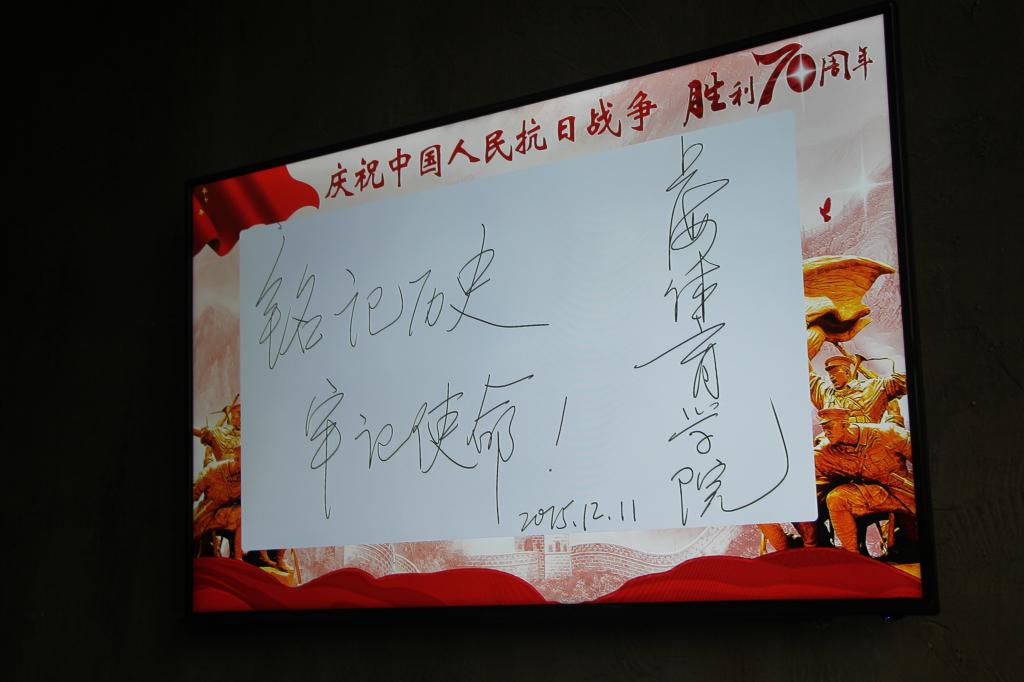 庆祝中国人民抗日战争 胜利70周年
铭记历史
牢记使命！
上海体育学院
2015.12.11